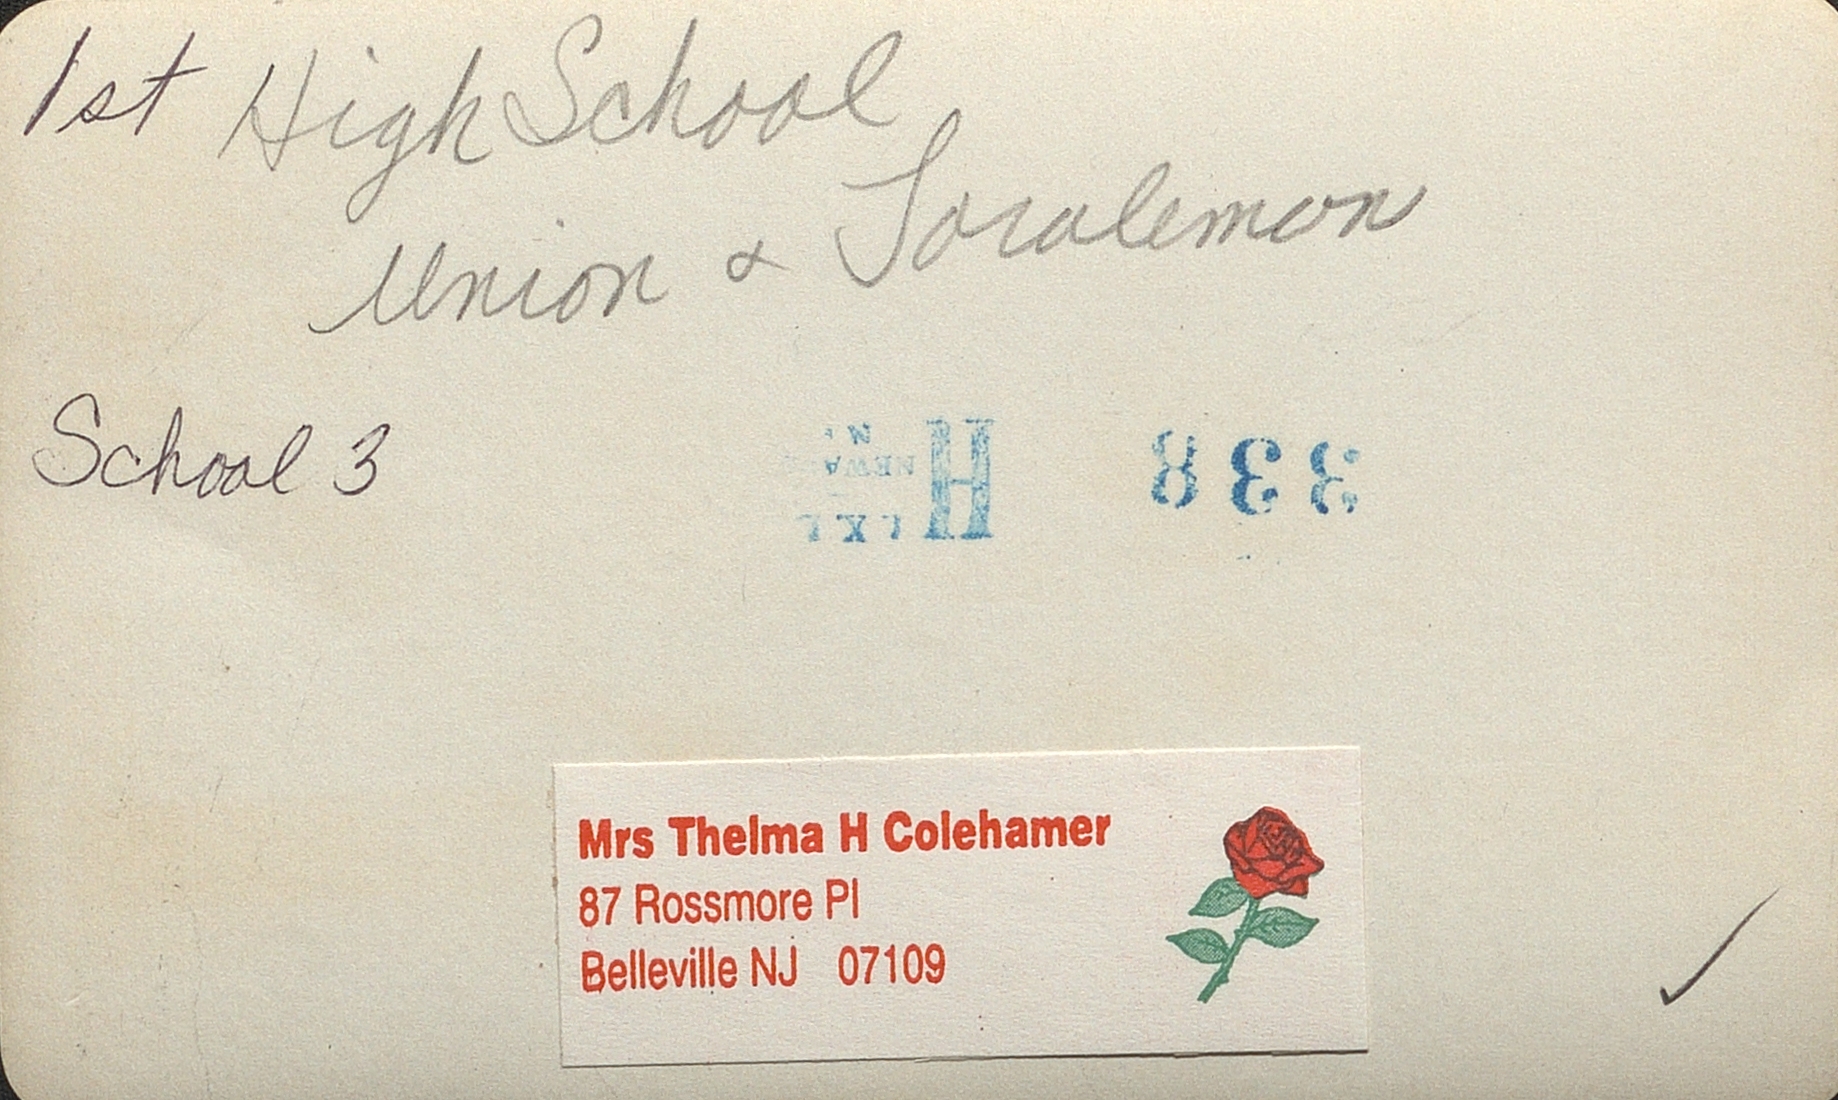 1st High School
Union & Joralemon
School 3
338
H
NEWA
N.
Mrs Thelma H Colehamer
87 Rossmore Pl
Belleville NJ 07109